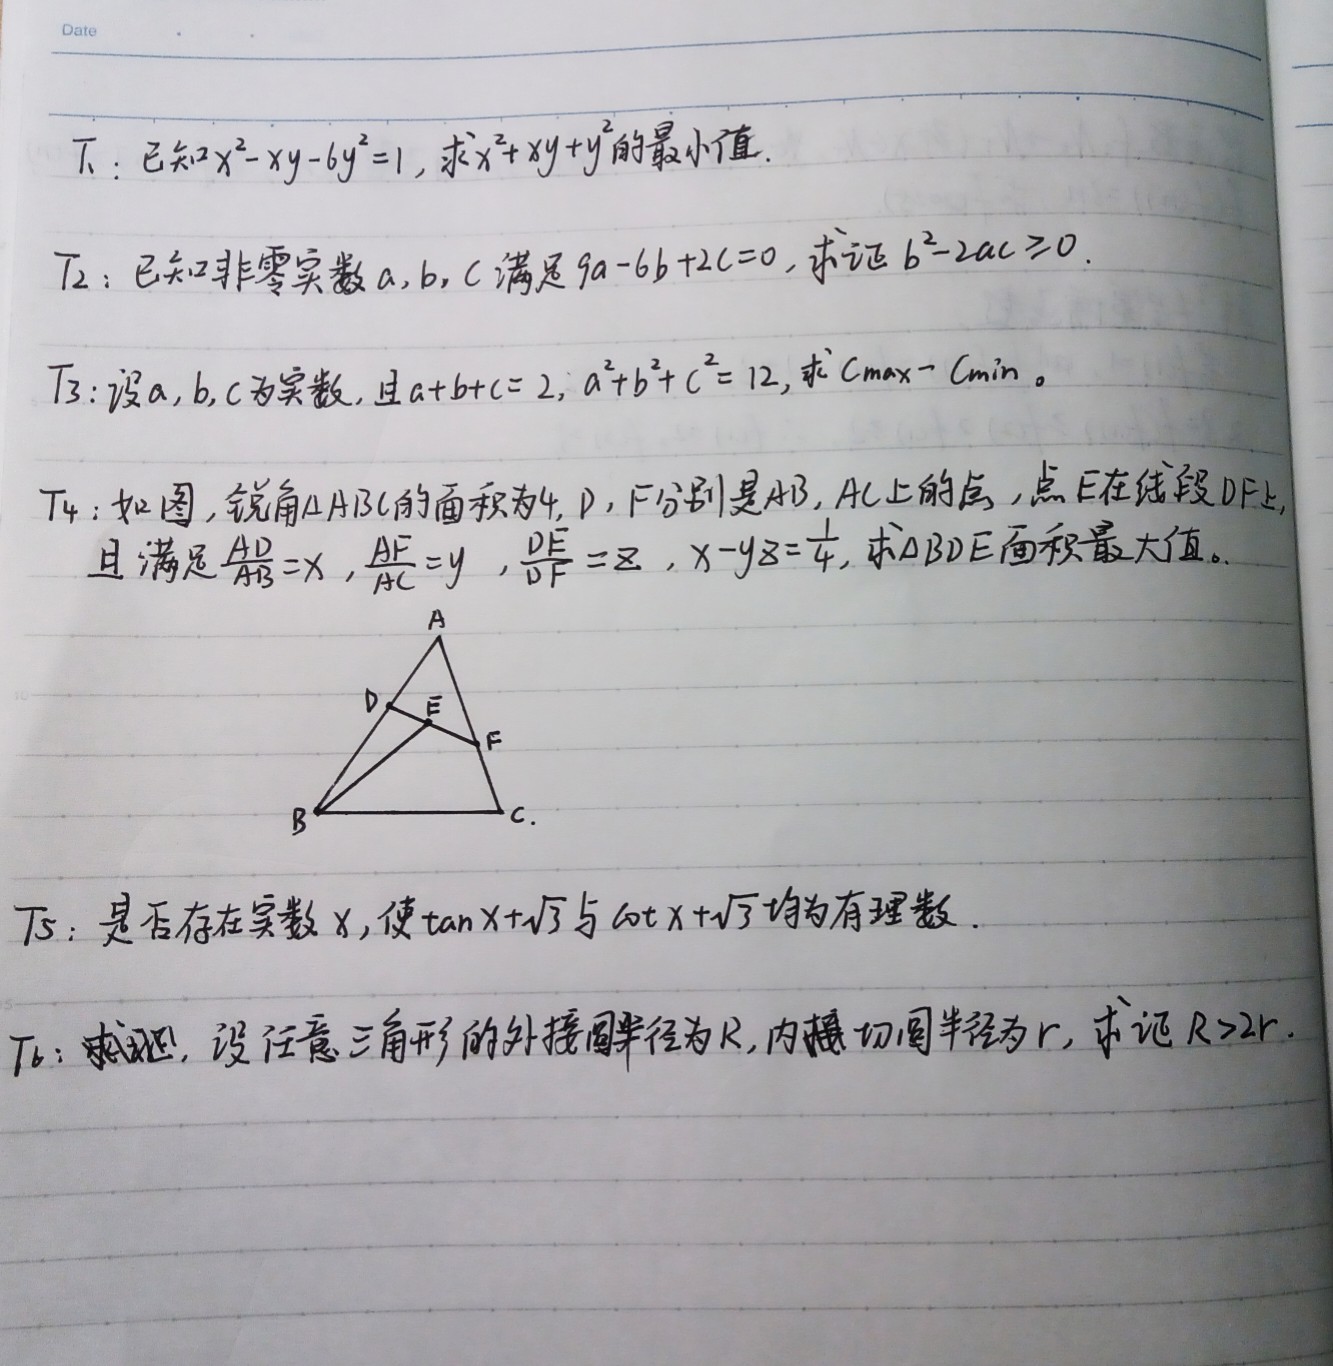 Date
T1：已知x²-xy-6y²=1，求x²+xy+y²的最小值.
T2：已知非零实数a，b，c满足9a-6b+2c=0，求证b²-2ac≥0.
T3：设a，b，c为实数，且a+b+c=2，a²+b²+c²=12，求Cmax-Cmin。
T4：如图，锐角△ABC的面积为4，D，F分别是AB，AC上的点，点E在线段DF上，
且满足AD/AB=x，AF/AC=y，DE/DF=z，x-yz=1/4，求△BDE面积最大值。
A
D
E
F
B
C.
T5：是否存在实数x，使tanx+√3与cotx+√3均为有理数.
T6：设任意三角形的外接圆半径为R，内切圆半径为r，求证R>2r.